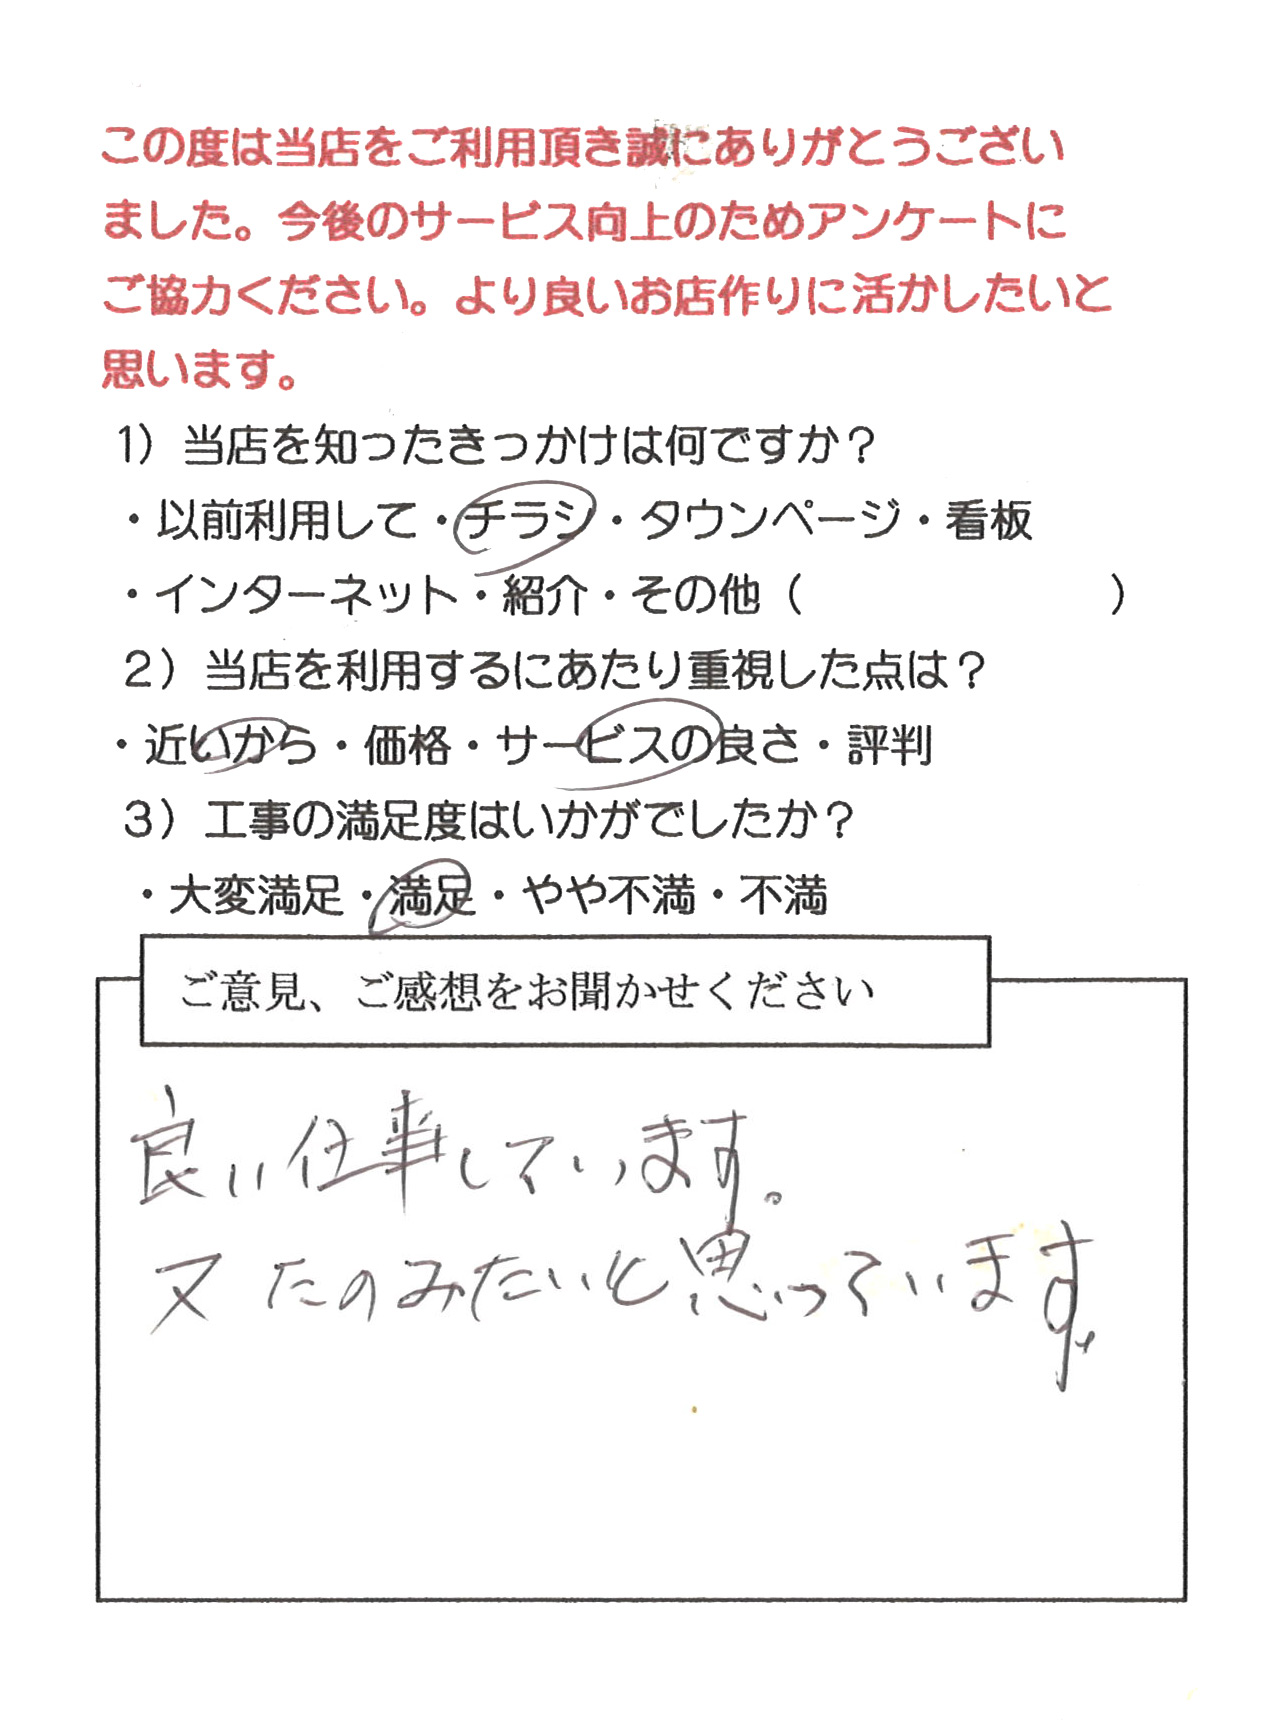 この度は当店をご利用頂き誠にありがとうござい
ました。今後のサービス向上のためアンケートに
ご協力ください。より良いお店作りに活かしたいと
思います。
1）当店を知ったきっかけは何ですか？
・以前利用して・チラシ・タウンページ・看板
・インターネット・紹介・その他（　　　　　　　）
2）当店を利用するにあたり重視した点は？
・近いから・価格・サービスの良さ・評判
3）工事の満足度はいかがでしたか？
・大変満足・満足・やや不満・不満
ご意見、ご感想をお聞かせください
良い仕事しています。
又たのみたいと思っています。